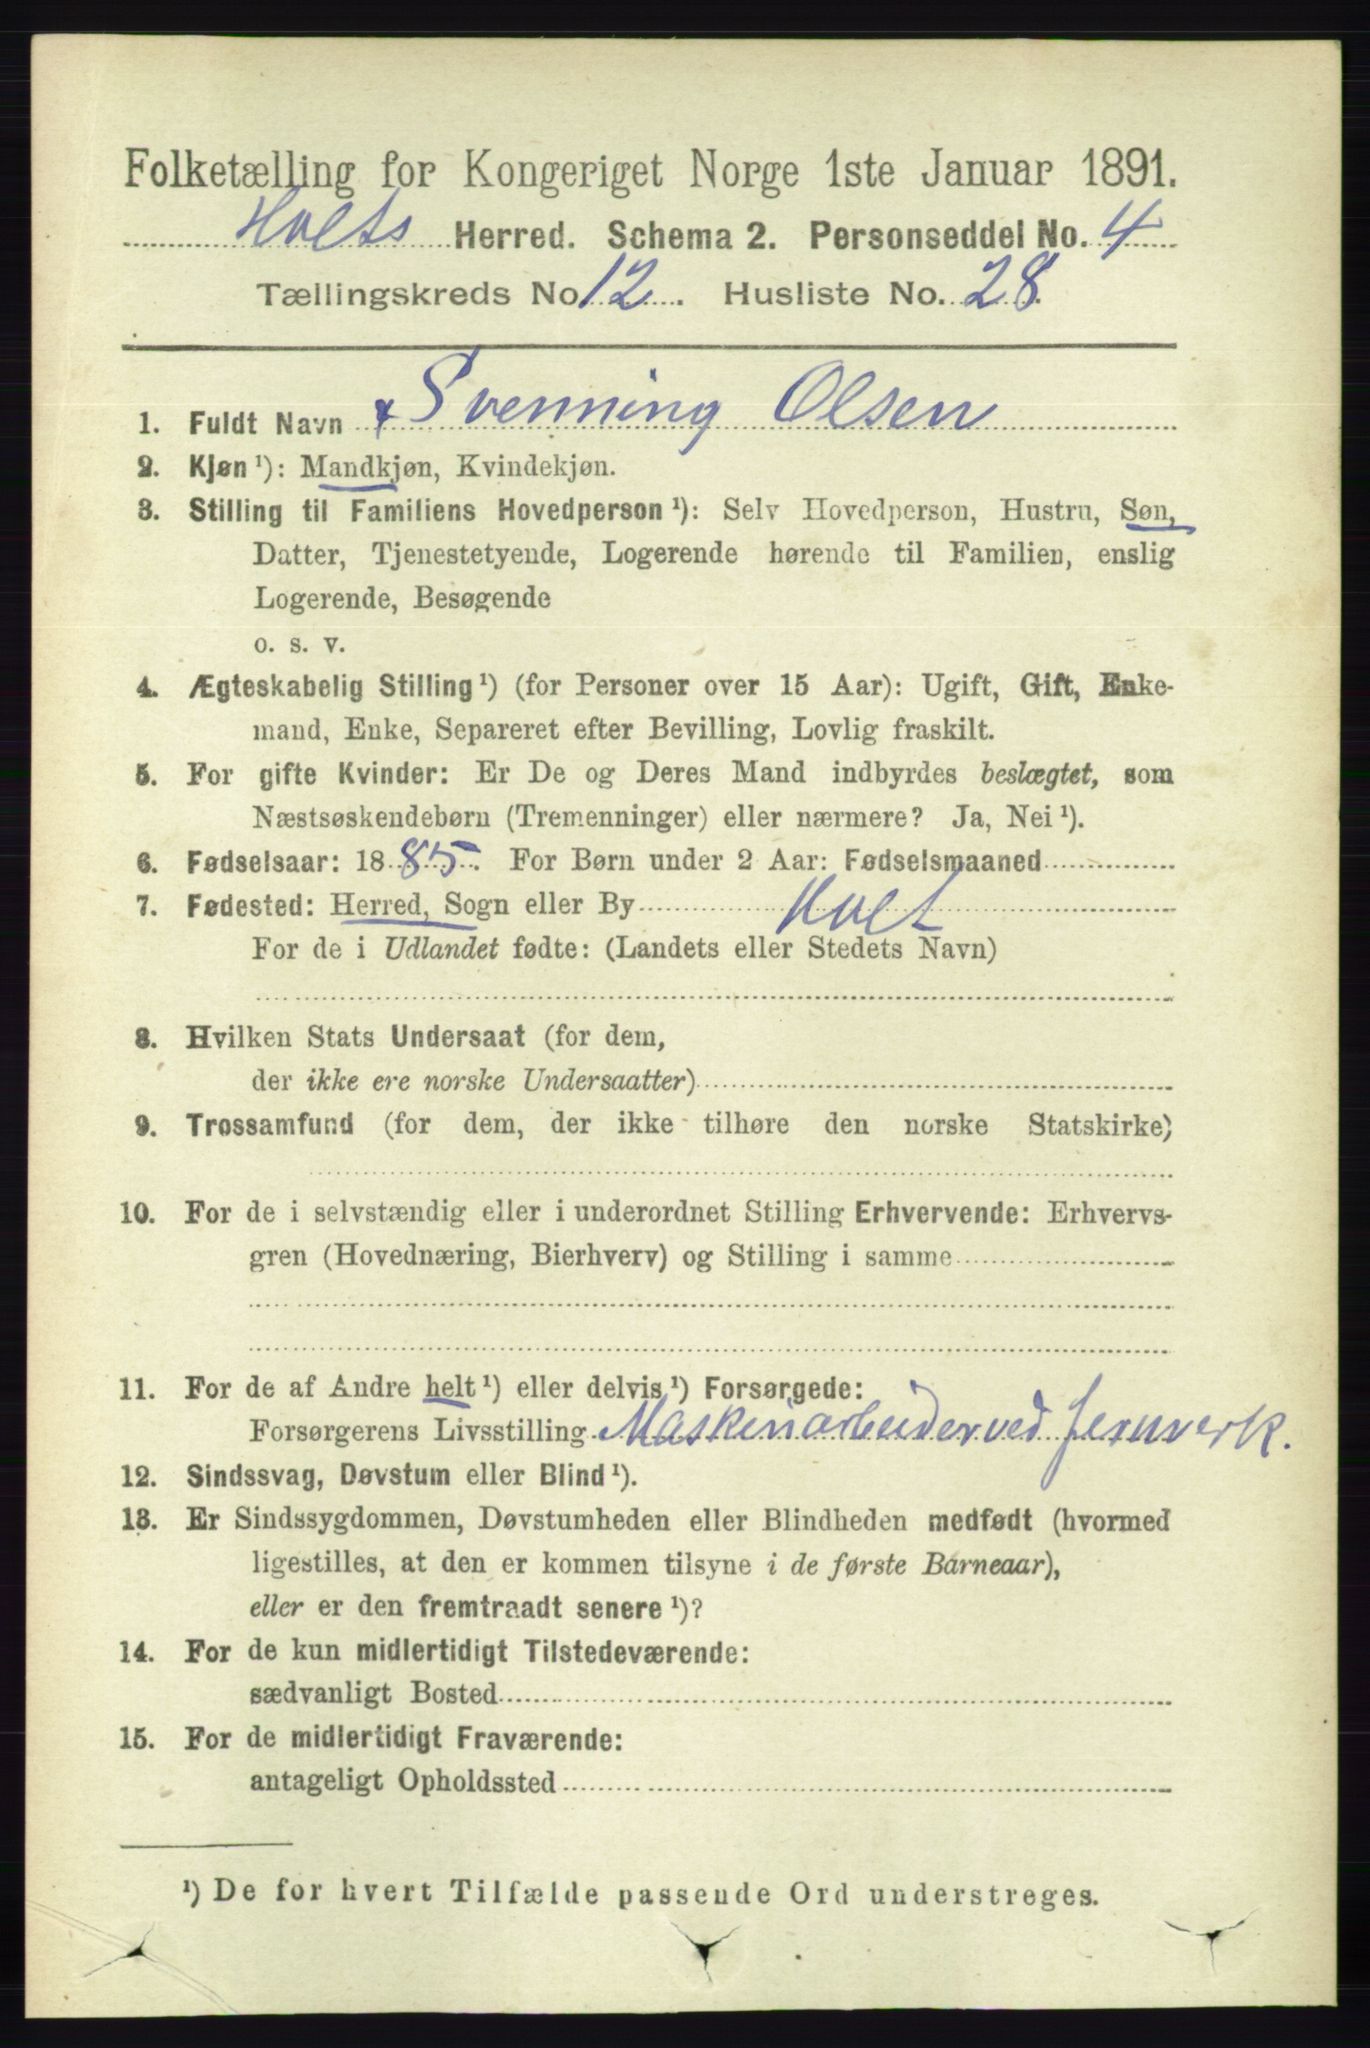 Folketælling for Kongeriget Norge 1ste Januar 1891.
Holts Herred. Schema 2. Personseddel No. 4
Tællingskreds No 12. Husliste No. 28.
1. Fuldt Navn Svenning Olsen
2. Kjøn ¹): Mandkjøn, Kvindekjøn.
3. Stilling til Familiens Hovedperson ¹): Selv Hovedperson, Hustru, Søn,
Datter, Tjenestetyende, Logerende hørende til Familien, enslig
Logerende, Besøgende
o. s. v.
4. Ægteskabelig Stilling ¹) (for Personer over 15 Aar): Ugift, Gift, Enke-
mand, Enke, Separeret efter Bevilling, Lovlig fraskilt.
5. For gifte Kvinder: Er De og Deres Mand indbyrdes beslægtet, som
Næstsøskendebørn (Tremenninger) eller nærmere? Ja, Nei ¹).
6. Fødselsaar: 1885. For Børn under 2 Aar: Fødselsmaaned
7. Fødested: Herred, Sogn eller By Holt
For de i Udlandet fødte: (Landets eller Stedets Navn)
8. Hvilken Stats Undersaat (for dem,
der ikke ere norske Undersaatter)
9. Trossamfund (for dem, der ikke tilhøre den norske Statskirke)
10. For de i selvstændig eller i underordnet Stilling Erhvervende: Erhvervs-
gren (Hovednæring, Bierhverv) og Stilling i samme
11. For de af Andre helt ¹) eller delvis ¹) Forsørgede:
Forsørgerens Livsstilling Maskinarbeider ved Jernverk.
12. Sindssvag, Døvstum eller Blind ¹).
13. Er Sindssygdommen, Døvstumheden eller Blindheden medfødt (hvormed
ligestilles, at den er kommen tilsyne i de første Barneaar),
eller er den fremtraadt senere ¹)?
14. For de kun midlertidigt Tilstedeværende:
sædvanligt Bosted
15. For de midlertidigt Fraværende:
antageligt Opholdssted
¹) De for hvert Tilfælde passende Ord understreges.